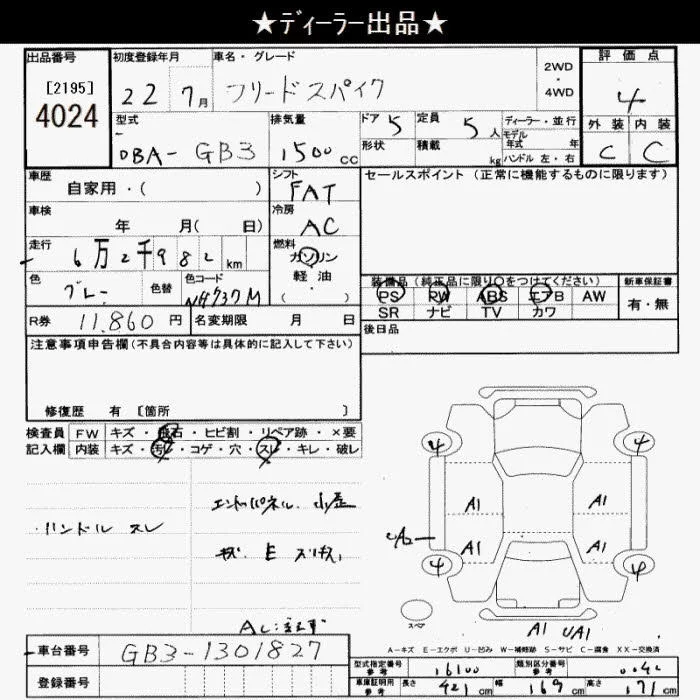 ★ディーラー出品★
出品番号
[2195]
4024
初度登録年月
22 7月
車名・グレード
フリードスパイク
2WD
・
4WD
評価点
4
外装 内装
C C
型式
DBA- GB3
排気量
1500cc
ドア 5
定員 5人
形状
積載 kg
ディーラー・並行
モデル
年式 年
ハンドル 左・右
車歴
自家用・( )
シフト
FAT
セールスポイント(正常に機能するものに限ります)
車検
年 月( 日)
冷房
AC
走行
6万2千982km
燃料
ガソリン
軽油・
( )
色
グレー
色替
色コード
NH737M
装備品(純正品に限り○をつけてください)
PS PW ABS エアB AW
SR ナビ TV カワ
新車保証書
有・無
R券 11,860円
名変期限 月 日
後日品
注意事項申告欄(不具合内容等は具体的に記入して下さい)
修復歴 有 [箇所 ]
検査員
記入欄
FW キズ・飛石・ヒビ割・リペア跡・×要
内装 キズ・汚レ・コゲ・穴・スレ・キレ・破レ
・ハンドル スレ
エンドパネル 小歪
4 4
A1 A1
A1 A1
4 4
スペア
A1 UA1
A-キズ E-エクボ U-凹み W-補修跡 S-サビ C-腐食 XX-交換済
車台番号 GB3-1301827
登録番号
型式指定番号
参考
16100
類別区分番号
参考
0042
車庫証明用
参考
長さ 421cm
幅 169cm
高さ 171cm